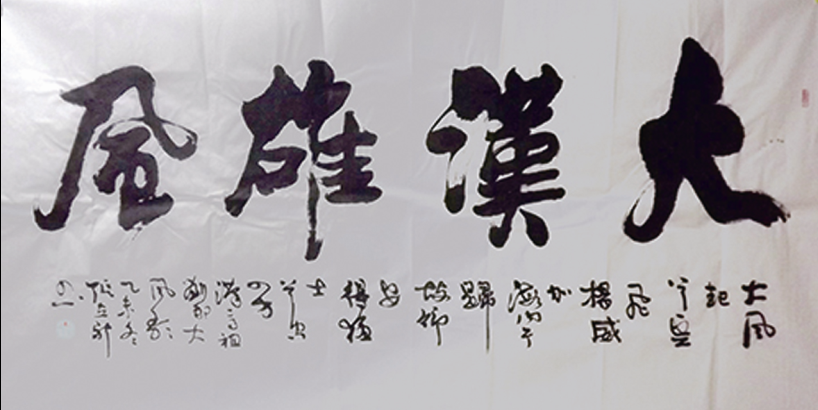 大漢雄風
大風
起
兮雲
飛
揚威
加
海內兮
歸
故鄉
安
得猛
士
兮守
四方
漢高祖
劉邦大
風歌
乙未冬